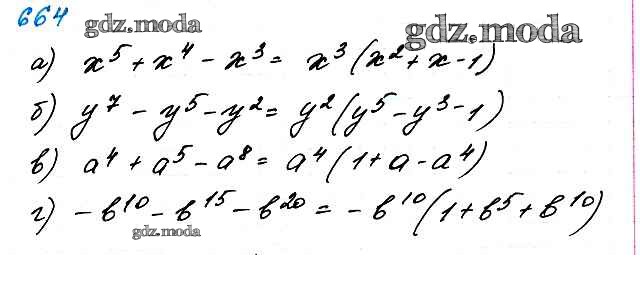 664 gdz.moda gdz.moda
а) x⁵ + x⁴ - x³ = x³ (x² + x - 1)
б) y⁷ - y⁵ - y² = y² (y⁵ - y³ - 1)
в) a⁴ + a⁵ - a⁸ = a⁴ (1 + a - a⁴)
г) - b¹⁰ - b¹⁵ - b²⁰ = - b¹⁰ (1 + b⁵ + b¹⁰)
gdz.moda